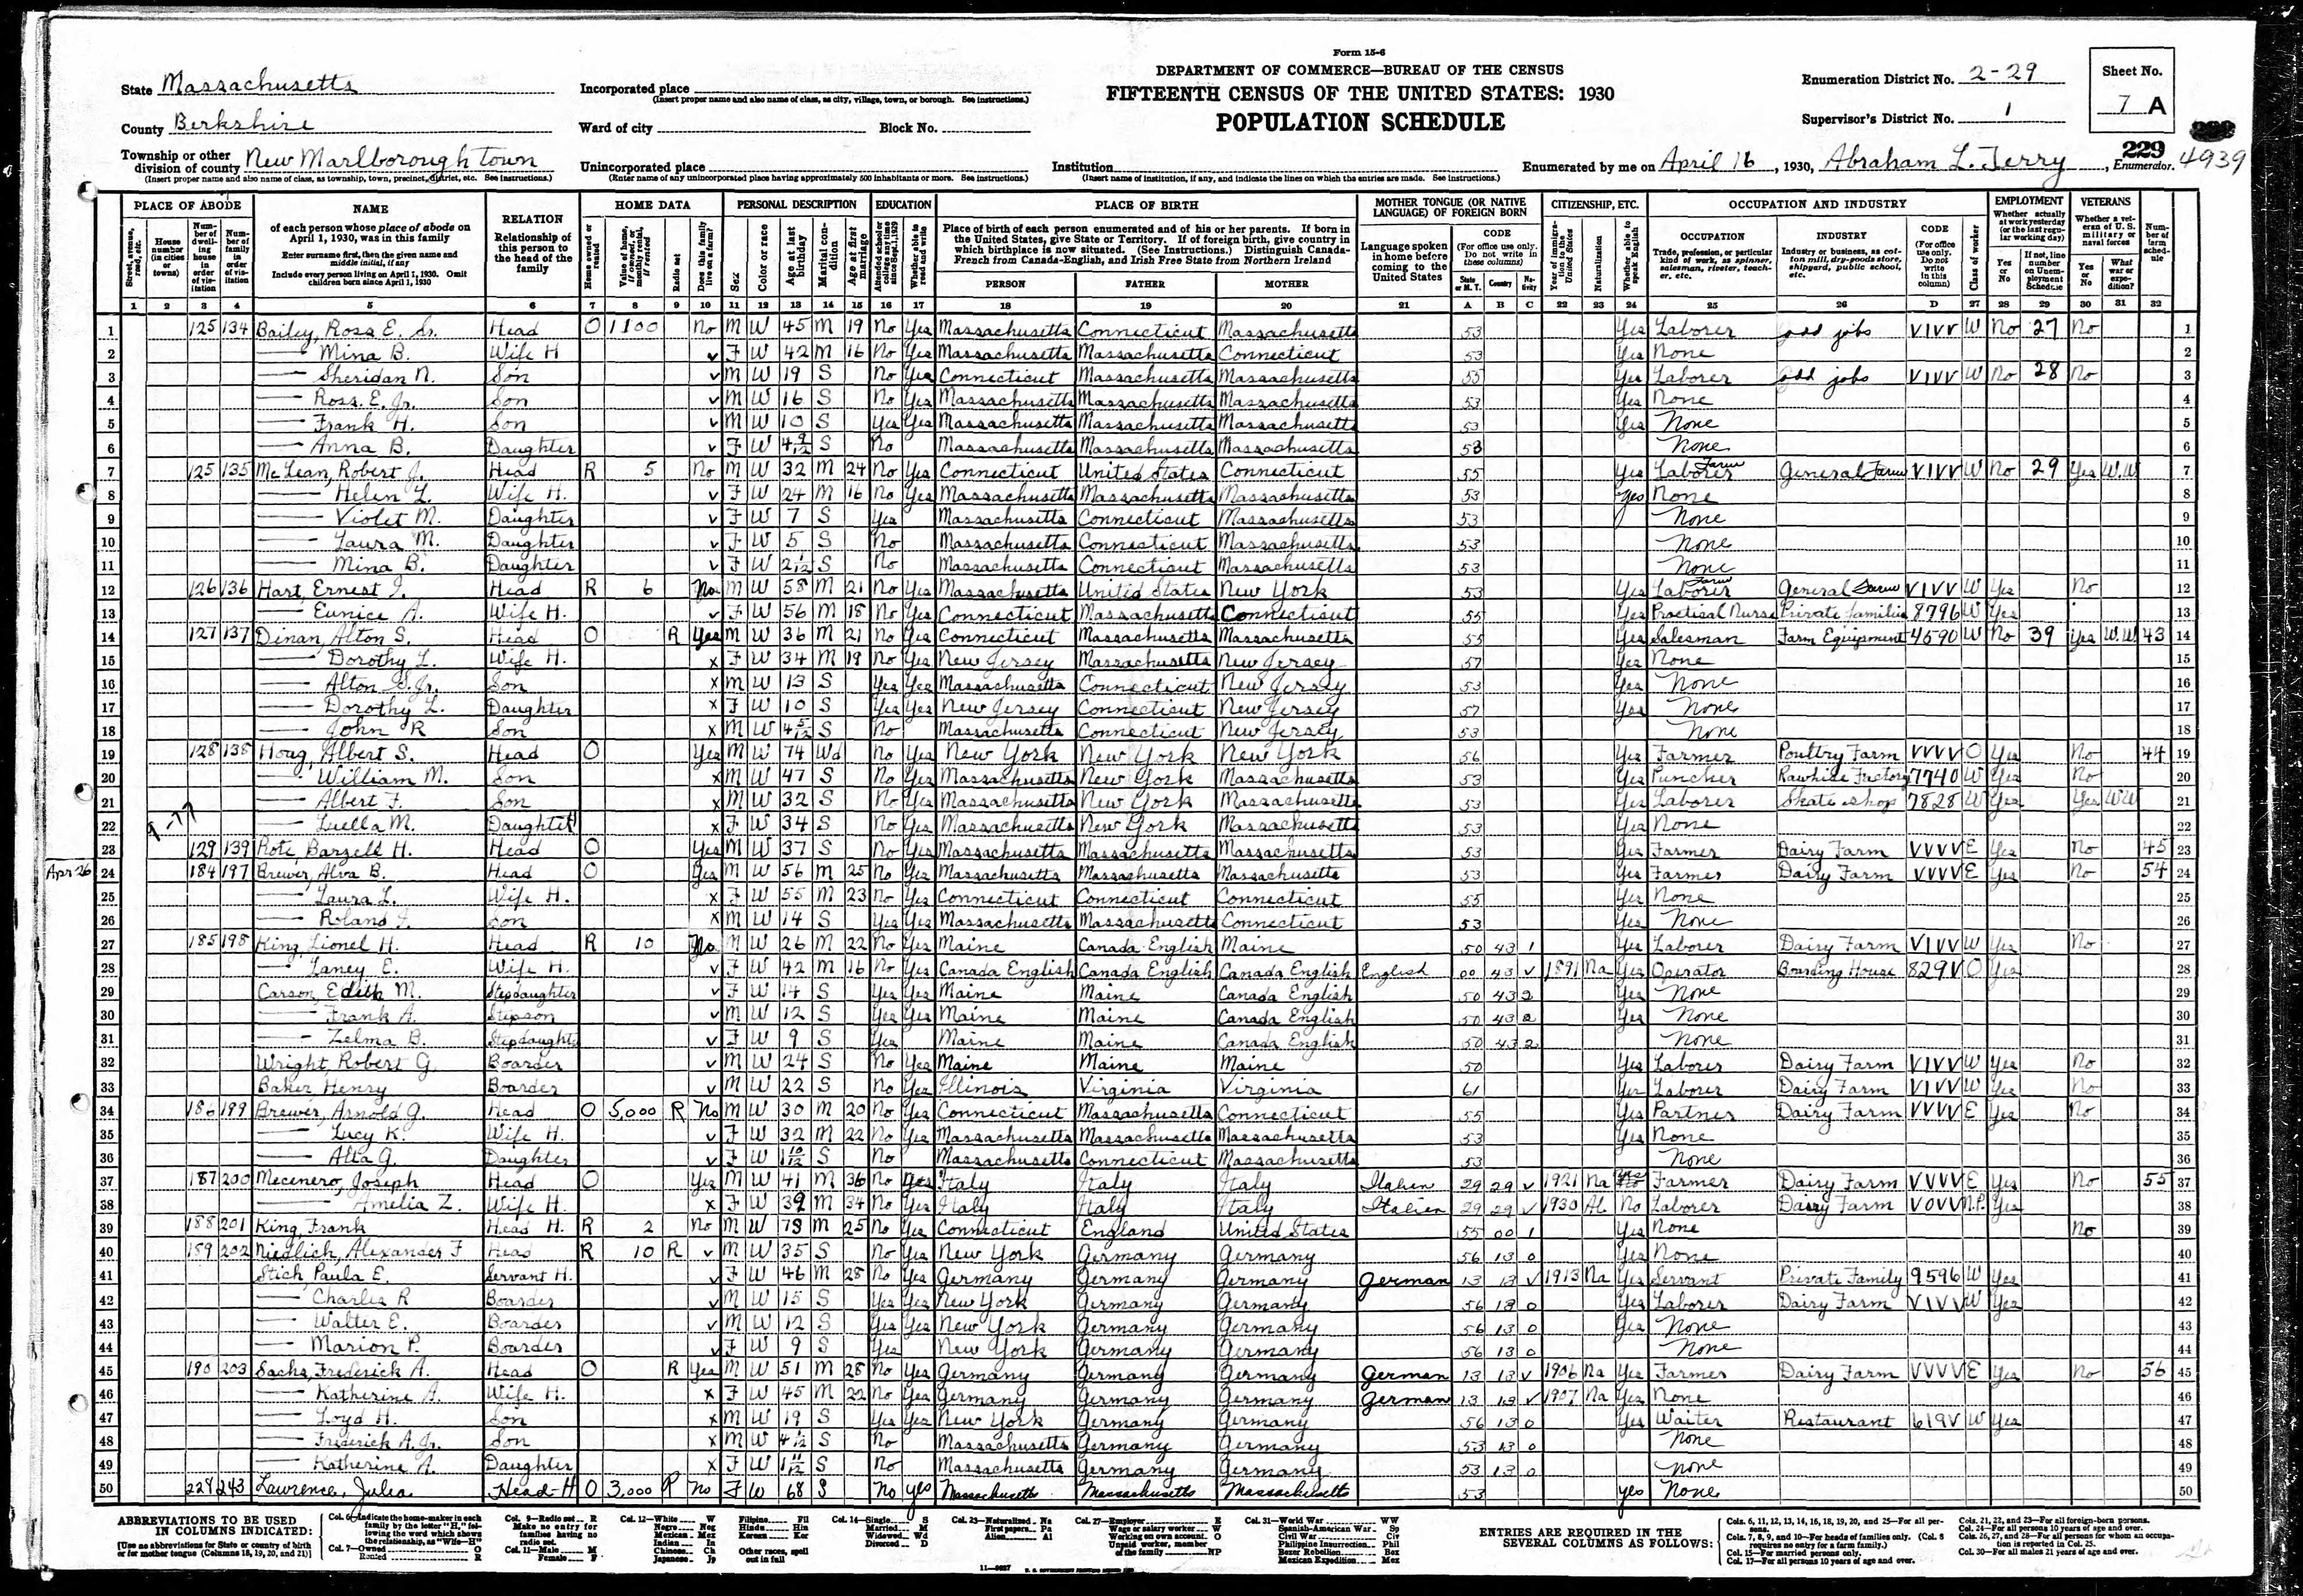 Form 15-6
DEPARTMENT OF COMMERCE—BUREAU OF THE CENSUS
FIFTEENTH CENSUS OF THE UNITED STATES: 1930
POPULATION SCHEDULE
State Massachusetts
County Berkshire
Township or other division of county New Marlborough town
(Insert proper name and also name of class, as township, town, precinct, district, etc. See instructions.)
Incorporated place
(Insert proper name and also name of class, as city, village, town, or borough. See instructions.)
Ward of city Block No.
Unincorporated place
(Enter name of any unincorporated place having approximately 500 inhabitants or more. See instructions.)
Institution
(Insert name of institution, if any, and indicate the lines on which the entries are made. See instructions.)
Enumeration District No. 2-29
Supervisor's District No. 1
Sheet No. 7 A
229
4939
Enumerated by me on April 16, 1930, Abraham L. Terry, Enumerator.
PLACE OF ABODE NAME RELATION HOME DATA PERSONAL DESCRIPTION EDUCATION PLACE OF BIRTH MOTHER TONGUE (OR NATIVE LANGUAGE) OF FOREIGN BORN CITIZENSHIP, ETC. OCCUPATION AND INDUSTRY EMPLOYMENT VETERANS
1 125 134 Bailey, Ross E. Sr. Head O 1100 No M W 45 M 19 No Yes Massachusetts Connecticut Massachusetts 53 Yes Laborer odd jobs VIVV W No 27 No 1
2 Mina B. Wife H V F W 42 M 16 No Yes Massachusetts Massachusetts Connecticut 53 Yes None 2
3 Sheridan N. Son V M W 19 S No Yes Connecticut Massachusetts Massachusetts 55 Yes Laborer odd jobs VIVV W No 28 No 3
4 Ross. E. Jr. Son V M W 16 S No Yes Massachusetts Massachusetts Massachusetts 53 Yes None 4
5 Frank H. Son V M W 10 S Yes Yes Massachusetts Massachusetts Massachusetts 53 Yes None 5
6 Anna B. Daughter V F W 4 9/12 S No Massachusetts Massachusetts Massachusetts 53 None 6
7 125 135 McLean, Robert J. Head R 5 No M W 32 M 24 No Yes Connecticut United States Connecticut 55 Yes Farm Laborer General Farm VIVV W No 29 Yes W.W 7
8 Helen L. Wife H. V F W 24 M 16 No Yes Massachusetts Massachusetts Massachusetts 53 Yes None 8
9 Violet M. Daughter V F W 7 S Yes Massachusetts Connecticut Massachusetts 53 None 9
10 Laura M. Daughter V F W 5 S No Massachusetts Connecticut Massachusetts 53 None 10
11 Mina B. Daughter V F W 2 1/12 S No Massachusetts Connecticut Massachusetts 53 None 11
12 126 136 Hart, Ernest J. Head R 6 No M W 58 M 21 No Yes Massachusetts United States New York 53 Yes Farm Laborer General Farm VIVV W Yes No 12
13 Eunice A. Wife H. V F W 56 M 18 No Yes Connecticut Massachusetts Connecticut 55 Yes Practical Nurse Private families 8796 W Yes 13
14 127 137 Dinan, Alton S. Head O R Yes M W 36 M 21 No Yes Connecticut Massachusetts Massachusetts 55 Yes Salesman Farm Equipment 4590 W No 39 Yes W.W 43 14
15 Dorothy L. Wife H. X F W 34 M 19 No Yes New Jersey Massachusetts New Jersey 57 Yes None 15
16 Alton S. Jr. Son X M W 13 S Yes Yes Massachusetts Connecticut New Jersey 53 Yes None 16
17 Dorothy L. Daughter X F W 10 S Yes Yes New Jersey Connecticut New Jersey 57 Yes None 17
18 John R Son X M W 4 5/12 S No Massachusetts Connecticut New Jersey 53 None 18
19 128 138 Hoag, Albert S. Head O Yes M W 74 Wd No Yes New York New York New York 56 Yes Farmer Poultry Farm VVVV O Yes No 44 19
20 William M. Son X M W 47 S No Yes Massachusetts New York Massachusetts 53 Yes Puncher Rawhide Factory 7740 W Yes No 20
21 Albert F. Son X M W 32 S No Yes Massachusetts New York Massachusetts 53 Yes Laborer Skate shop 7828 W Yes Yes WW 21
22 Luella M. Daughter X F W 34 S No Yes Massachusetts New York Massachusetts 53 Yes None 22
23 129 139 Rote, Barzell H. Head O Yes M W 37 S No Yes Massachusetts Massachusetts Massachusetts 53 Yes Farmer Dairy Farm VVVV E Yes No 45 23
Apr 26 24 184 197 Brewer, Alva B. Head O Yes M W 56 M 25 No Yes Massachusetts Massachusetts Massachusetts 53 Yes Farmer Dairy Farm VVVV E Yes No 54 24
25 Laura L. Wife H. X F W 55 M 23 No Yes Connecticut Connecticut Connecticut 55 Yes None 25
26 Roland F. Son X M W 14 S Yes Yes Massachusetts Massachusetts Connecticut 53 Yes None 26
27 185 198 King, Lionel H. Head R 10 No M W 26 M 22 No Yes Maine Canada English Maine 50 43 1 Yes Laborer Dairy Farm VIVV W Yes No 27
28 Laney E. Wife H. V F W 42 M 16 No Yes Canada English Canada English Canada English English 00 43 V 1891 Na Yes Operator Boarding House 829V O Yes 28
29 Carson, Edith M. Stepdaughter V F W 14 S Yes Yes Maine Maine Canada English 50 43 2 Yes None 29
30 Frank A. Stepson V M W 12 S Yes Yes Maine Maine Canada English 50 43 2 Yes None 30
31 Zelma B. Stepdaughter V F W 9 S Yes Maine Maine Canada English 50 43 2 None 31
32 Wright, Robert G. Boarder V M W 24 S No Yes Maine Maine Maine 50 Yes Laborer Dairy Farm VIVV W Yes No 32
33 Baker, Henry Boarder V M W 22 S No Yes Illinois Virginia Virginia 61 Yes Laborer Dairy Farm VIVV W Yes No 33
34 186 199 Brewer, Arnold G. Head O 5,000 R No M W 30 M 20 No Yes Connecticut Massachusetts Connecticut 55 Yes Partner Dairy Farm VVVV E Yes No 34
35 Lucy K. Wife H. V F W 32 M 22 No Yes Massachusetts Massachusetts Massachusetts 53 Yes None 35
36 Alta G. Daughter V F W 1 10/12 S No Massachusetts Connecticut Massachusetts 53 None 36
37 187 200 Mecenero, Joseph Head O Yes M W 41 M 36 No Yes Italy Italy Italy Italian 29 29 V 1921 Na Farmer Dairy Farm VVVV E Yes No 55 37
38 Amelia Z. Wife H. X F W 39 M 34 No Yes Italy Italy Italy Italian 29 29 V 1930 Al. No Laborer Dairy Farm VOVV N.P. Yes 38
39 188 201 King, Frank Head H. R 2 No M W 78 M 25 No Yes Connecticut England United States 55 00 1 Yes None No 39
40 189 202 Niedlich, Alexander F Head R 10 R V M W 35 S No Yes New York Germany Germany 56 13 0 Yes None 40
41 Stich, Paula E. Servant H. V F W 46 M 28 No Yes Germany Germany Germany German 13 13 V 1913 Na Yes Servant Private Family 9596 W Yes 41
42 Charles R Boarder V M W 15 S Yes Yes New York Germany Germany 56 13 0 Yes Laborer Dairy Farm VIVV W Yes 42
43 Walter E. Boarder V M W 12 S Yes Yes New York Germany Germany 56 13 0 Yes None 43
44 Marion P. Boarder V F W 9 S Yes New York Germany Germany 56 13 0 None 44
45 190 203 Sachs, Frederick A. Head O R Yes M W 51 M 28 No Yes Germany Germany Germany German 13 13 V 1906 Na Yes Farmer Dairy Farm VVVV E Yes No 56 45
46 Katherine A. Wife H. X F W 45 M 22 No Yes Germany Germany Germany German 13 13 V 1907 Na Yes None 46
47 Loyd H. Son X M W 19 S Yes Yes New York Germany Germany 56 13 0 Yes Waiter Restaurant 619V W Yes 47
48 Frederick A. Jr. Son X M W S No Massachusetts Germany Germany 53 13 0 None 48
49 Katherine A. Daughter X F W 1 11/12 S No Massachusetts Germany Germany 53 13 0 None 49
50 228 243 Lawrence, Julia Head-H O 3,000 R No F W 68 S No yes Massachusetts Massachusetts Massachusetts 53 yes None 50
ABBREVIATIONS TO BE USED IN COLUMNS INDICATED:
[Use no abbreviations for State or country of birth or for mother tongue (Columns 18, 19, 20, and 21)]
ENTRIES ARE REQUIRED IN THE SEVERAL COLUMNS AS FOLLOWS: